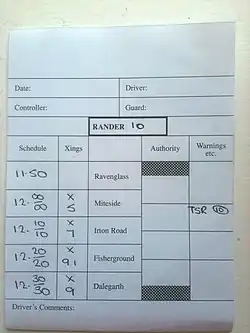 Date: Driver:
Controller: Guard:
RANDER 10
Schedule Xings Authority Warnings etc.
11.50 Ravenglass
12. 00/00 X 5 Miteside TSR 10
12. 10/10 X 7 Irton Road
12. 20/20 X 9.1 Fisherground
12. 30/30 X 9 Dalegarth
Driver's Comments: